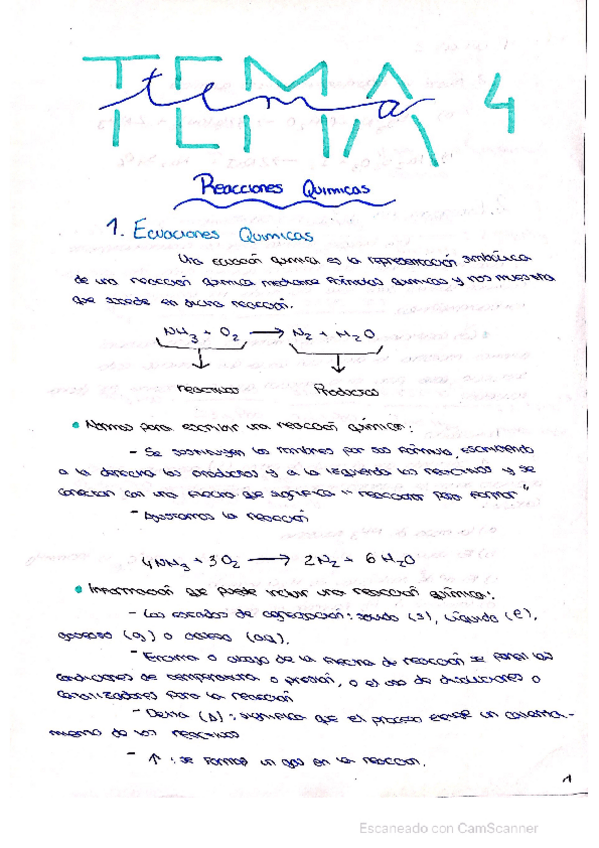 TEMA 4
tema
Reacciones Químicas
1. Ecuaciones Químicas
Una ecuación química es la representación simbólica
de una reacción química mediante fórmulas químicas y nos muestra
que sucede en dicha reacción.
NH3 + O2 → N2 + H2O
reactivos Productos
• Normas para escribir una reacción química:
- Se sustituyen los nombres por sus fórmula, escribiendo
a la derecha los productos y a la izquierda los reactivos y se
conectan con una flecha que significa "reaccionar para formar"
- Ajustamos la reacción
4NH3 + 3O2 → 2N2 + 6H2O
• Información que puede incluir una reacción química:
- Los estados de agregación: sólido (s), líquido (l),
gaseoso (g) o acuoso (aq).
- Encima o abajo de la flecha de reacción se ponen las
condiciones de temperatura o presión, o el uso de disoluciones o
catalizadores para la reacción
- Delta (Δ): significa que el proceso exige un calenta-
miento de los reactivos
- ↑ : se forma un gas en la reacción.
1
Escaneado con CamScanner